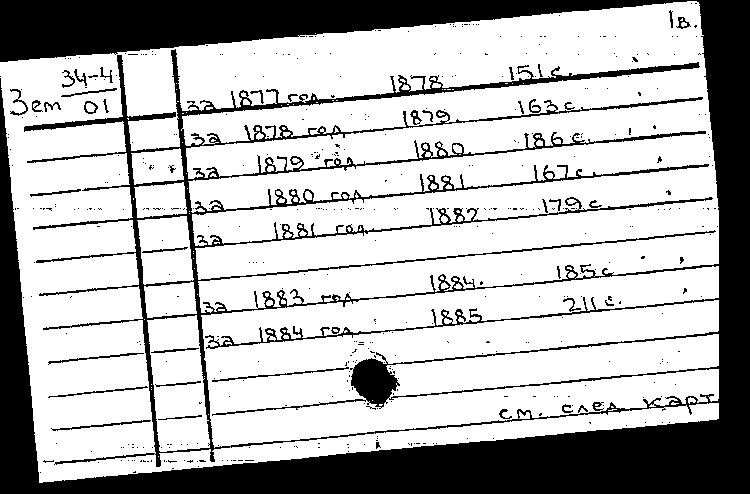 1в.
Зем 34-4
01
за 1877 год. 1878 151 с.
за 1878 год 1879. 163 с.
за 1879 год 1880 186 с.
за 1880 год 1881 167 с.
за 1881 год 1882 179 с.
за 1883 год 1884. 185 с
за 1884 год 1885 211 с.
см. след карт